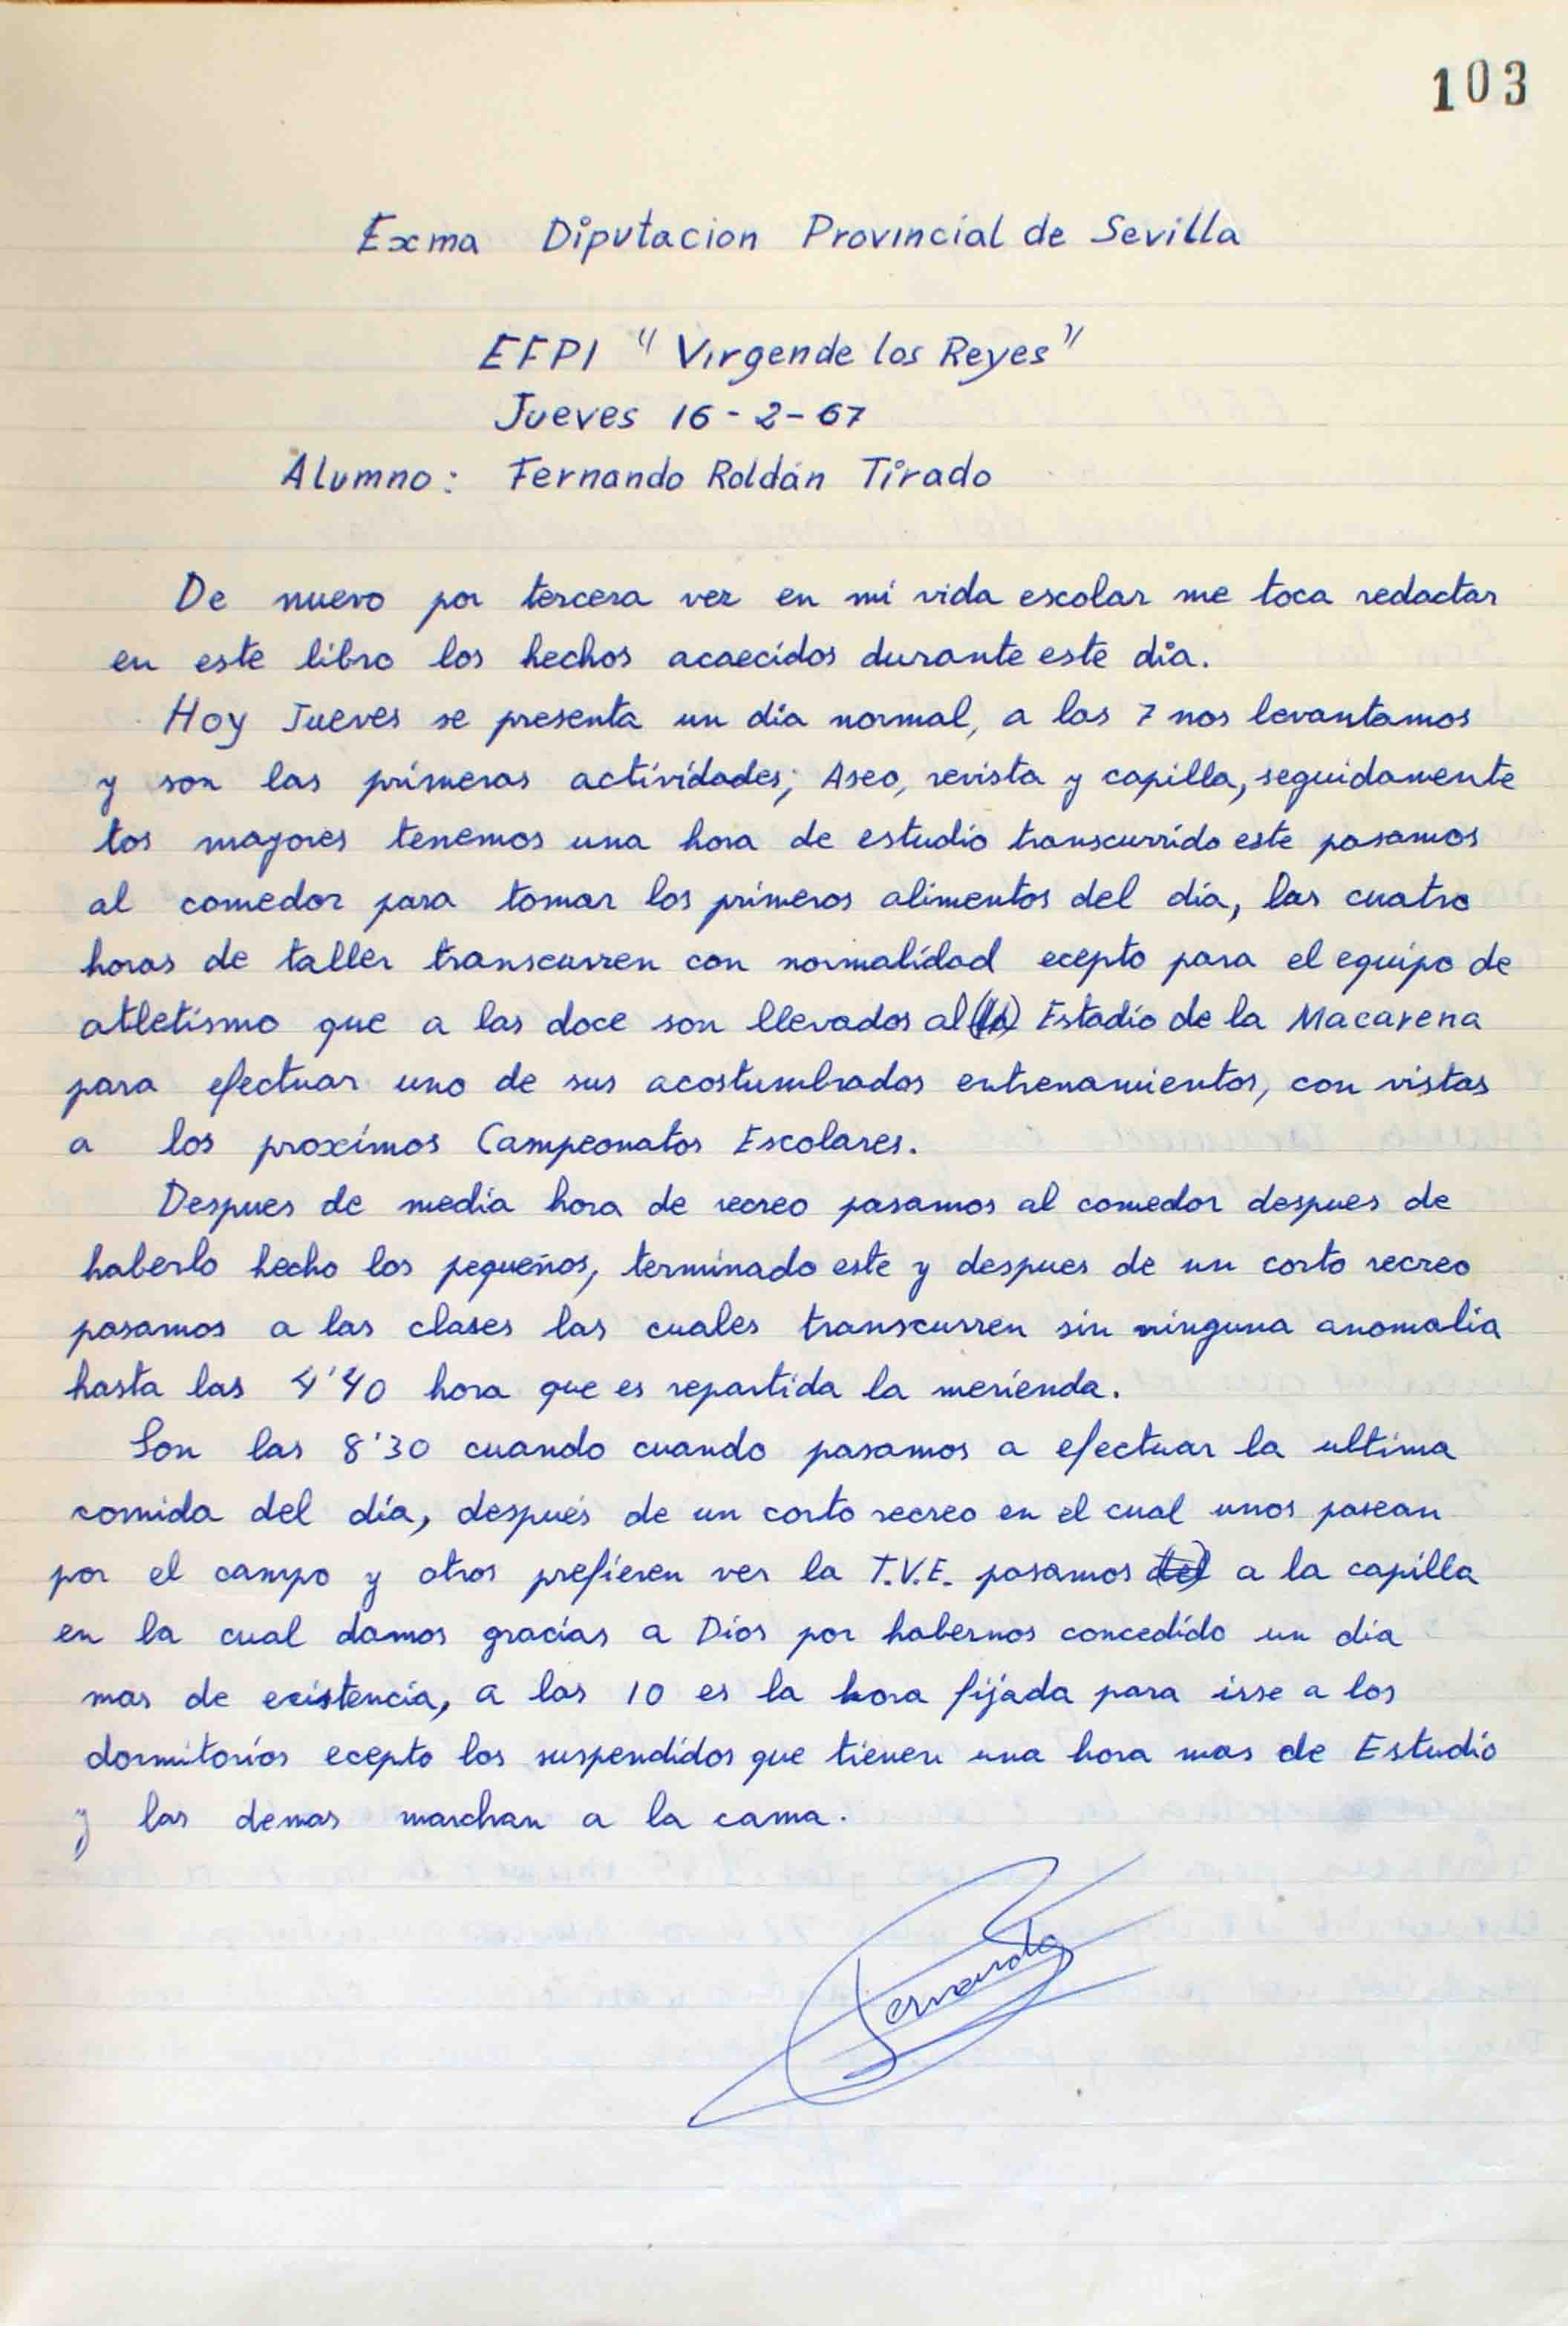 103
Exma Diputacion Provincial de Sevilla
EFPI "Virgende los Reyes"
Jueves 16-2-67
Alumno: Fernando Roldán Tirado
De nuevo por tercera vez en mi vida escolar me toca redactar
en este libro los hechos acaecidos durante este dia.
Hoy Jueves se presenta un día normal, a las 7 nos levantamos
y son las primeras actividades; Aseo, revista y capilla, seguidamente
los mayores tenemos una hora de estudio transcurrido este pasamos
al comedor para tomar los primeros alimentos del día, las cuatro
horas de taller transcurren con normalidad ecepto para el equipo de
atletismo que a las doce son llevados al Estadio de la Macarena
para efectuar uno de sus acostumbrados entrenamientos, con vistas
a los proximos Campeonatos Escolares.
Despues de media hora de recreo pasamos al comedor despues de
haberlo hecho los pequeños, terminado este y despues de un corto recreo
pasamos a las clases las cuales transcurren sin ninguna anomalia
hasta las 4'40 hora que es repartida la merienda.
Son las 8'30 cuando cuando pasamos a efectuar la ultima
comida del día, después de un corto recreo en el cual unos pasean
por el campo y otros prefieren ver la T.V.E. pasamos a la capilla
en la cual damos gracias a Dios por habernos concedido un dia
mas de existencia, a las 10 es la hora fijada para irse a los
dormitorios ecepto los suspendidos que tienen una hora mas de Estudio
y las demas marchan a la cama.
Fernando